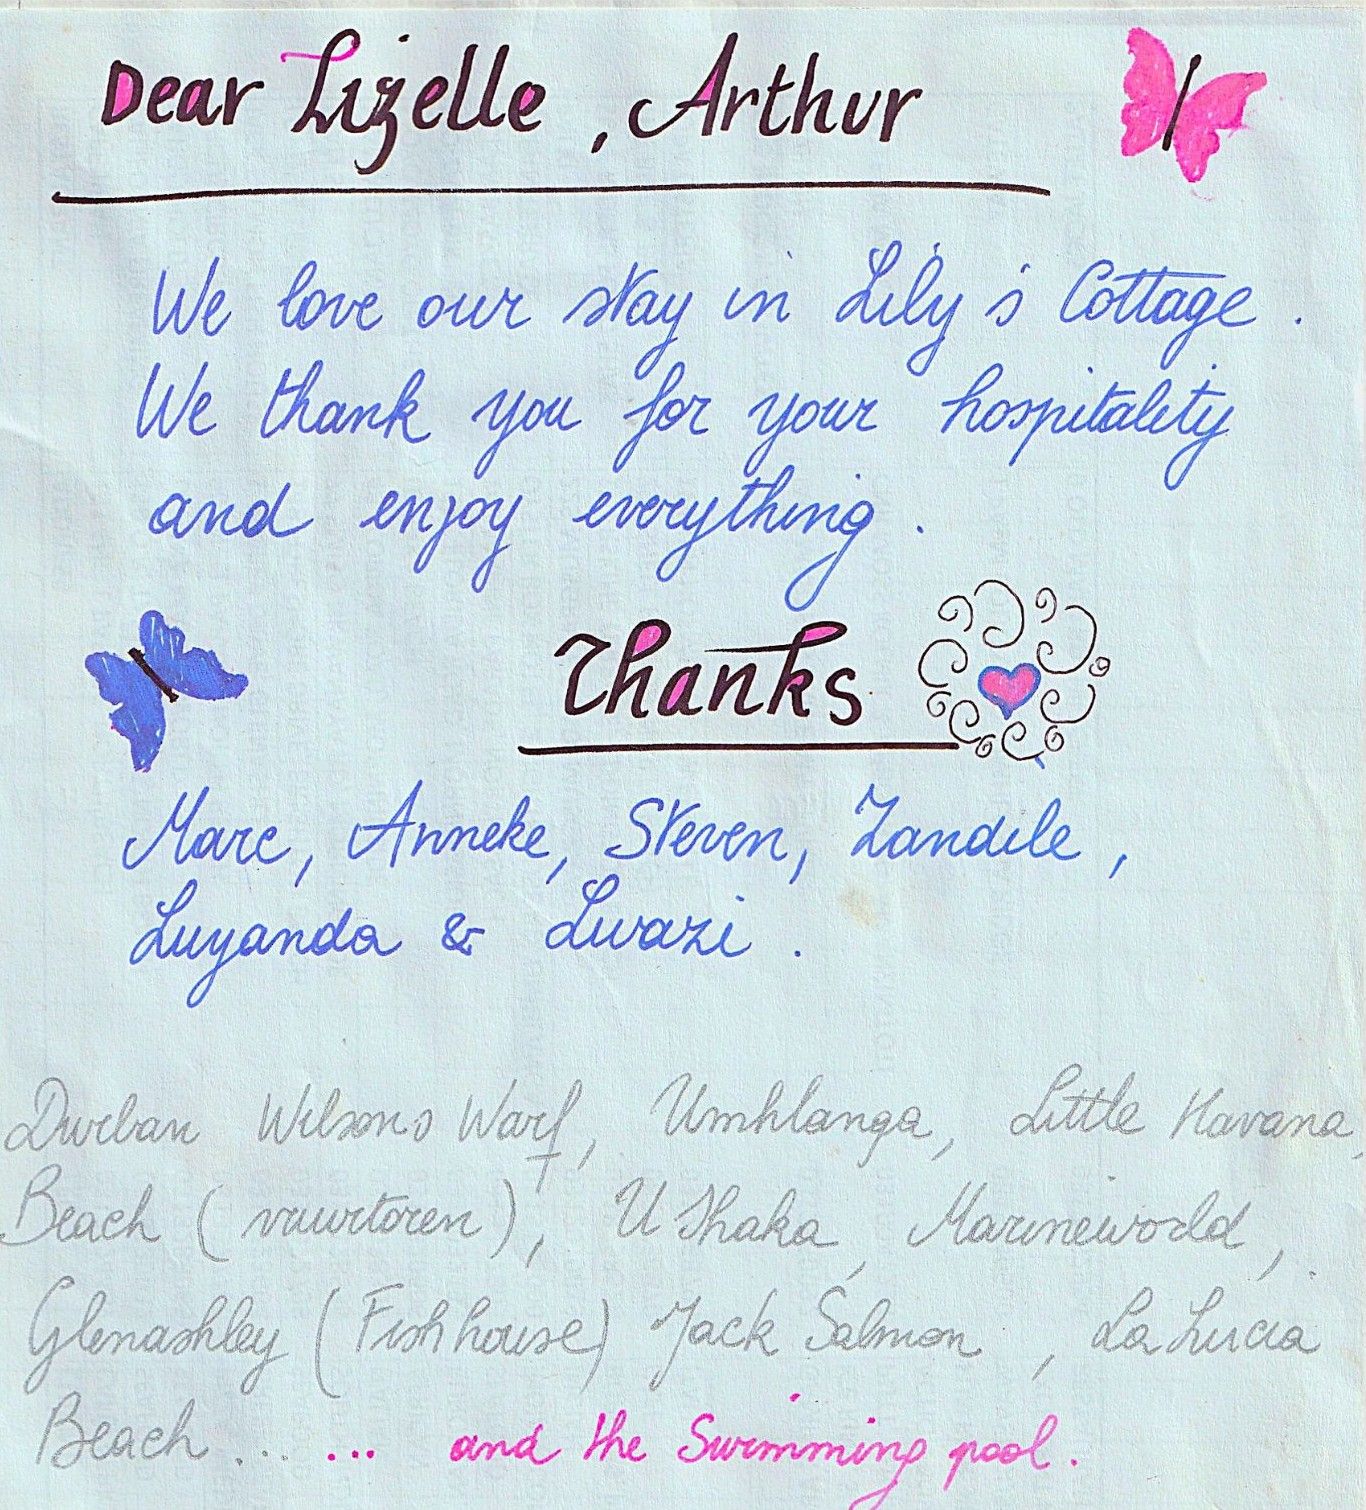 Dear Lizelle, Arthur
We love our stay in Lily's Cottage.
We thank you for your hospitality
and enjoy everything.
Thanks
Marc, Anneke, Steven, Zandile,
Luyanda & Lwazi.
Durban Wilsons Warf, Umhlanga, Little Havana,
Beach (vuurtoren), U Shaka, Marineworld,
Glenashley (Fishhouse) Jack Salmon, La Lucia
Beach ..... and the Swimming pool.